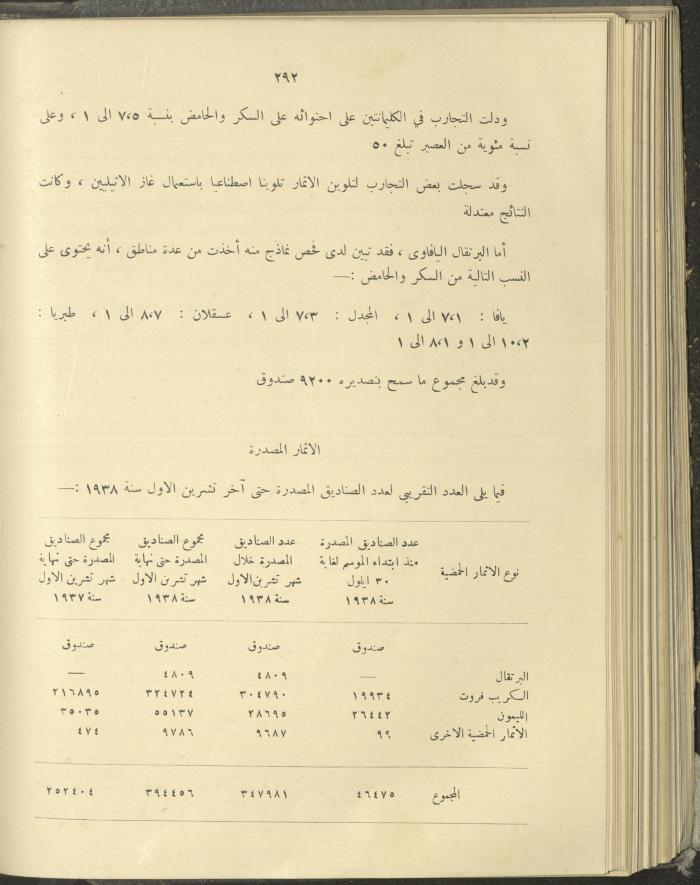 ٢٩٢
ودلت التجارب في الكليمانتين على احتوائه على السكر والحامض بنسبة ٧،٥ الى ١ ، وعلى
نسبة مئوية من العصير تبلغ ٥٠
وقد سجلت بعض التجارب لتلوين الاثمار تلوينا اصطناعيا باستعمال غاز الاثيليين ، وكانت
النتائج معتدلة
أما البرتقال اليافاوى ، فقد تبين لدى فحص نماذج منه أخذت من عدة مناطق ، أنه يحتوى على
النسب التالية من السكر والحامض :—
يافا : ٧،١ الى ١ ، المجدل : ٧،٣ الى ١ ، عسقلان : ٨،٧ الى ١ ، طبريا :
١٠،٢ الى ١ و ٨،١ الى ١
وقدبلغ مجموع ما سمح بتصديره ٩٢٠٠ صندوق
الاثمار المصدرة
فيما يلى العدد التقريبى لعدد الصناديق المصدرة حتى آخر تشرين الاول سنة ١٩٣٨ :—
نوع الاثمار الحمضية
عدد الصناديق المصدرة
منذ ابتداء الموسم لغاية
٣٠ ايلول
سنة ١٩٣٨
عدد الصناديق
المصدرة خلال
شهر تشرين الاول
سنة ١٩٣٨
مجموع الصناديق
المصدرة حتى نهاية
شهر تشرين الاول
سنة ١٩٣٨
مجموع الصناديق
المصدرة حتى نهاية
شهر تشرين الاول
سنة ١٩٣٧
صندوق صندوق صندوق صندوق
البرتقال — ٤٨٠٩ ٤٨٠٩ —
الكريب فروت ١٩٩٣٤ ٣٠٤٧٩٠ ٣٢٤٧٢٤ ٢١٦٨٩٥
الليمون ٢٦٤٤٢ ٢٨٦٩٥ ٥٥١٣٧ ٣٥٠٣٥
الاثمار الحمضية الاخرى ٩٩ ٩٦٨٧ ٩٧٨٦ ٤٧٤
المجموع ٤٦٤٧٥ ٣٤٧٩٨١ ٣٩٤٤٥٦ ٢٥٢٤٠٤